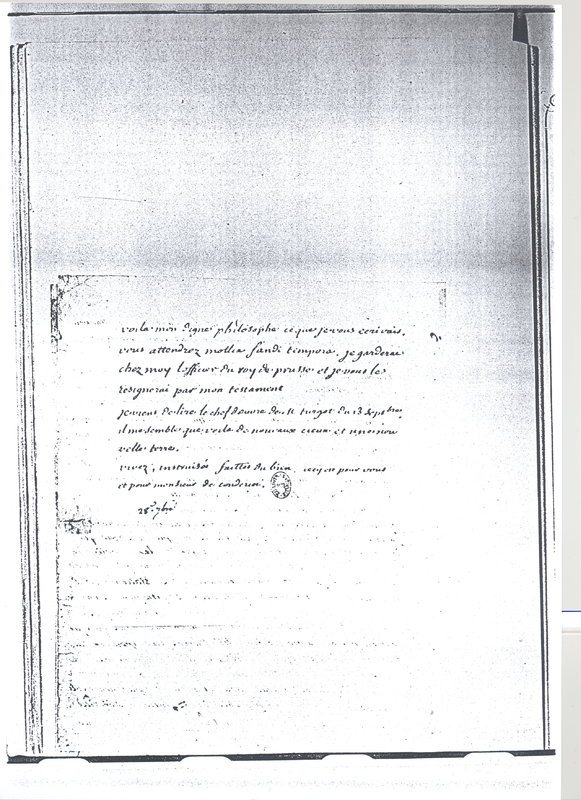 voila mon digne philosophe ce que je vous ecrivais.
vous attendrez mollia fandi tempora. je garderai
chez moy l'officier du roy de prusse et je vous le
resignerai par mon testament
je viens de lire le chef douvre de M turgot du 13 septbre
il me semble que voila de nouveaux cieux et une nou
velle terre.
vivez, instruisez faittes du bien. cecy est pour vous
et pour monsieur de condorcet.
28e 7bre